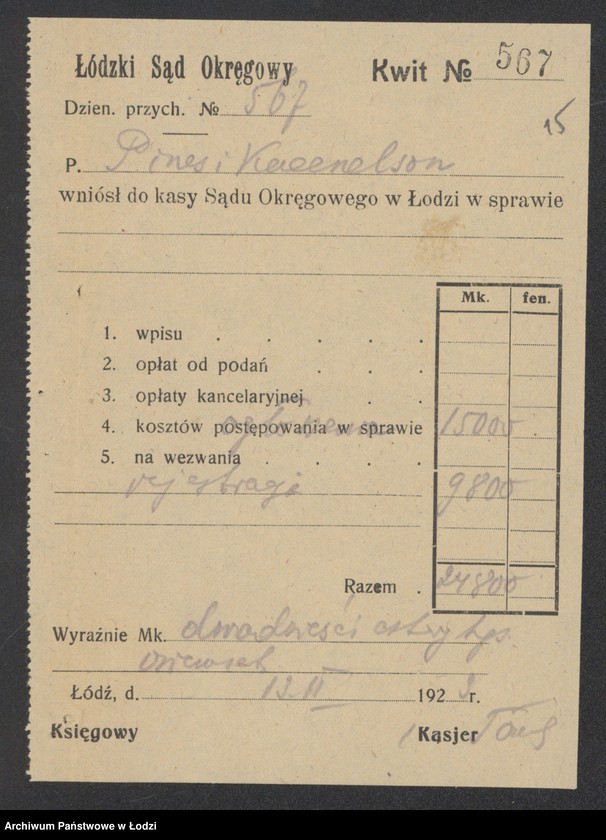 Łódzki Sąd Okręgowy
Kwit № 567
Dzien. przych. № 567
15
P. Pines i Kacenelson
wniósł do kasy Sądu Okręgowego w Łodzi w sprawie
Mk. fen.
1. wpisu . . . . .
2. opłat od podań . . .
3. opłaty kancelaryjnej . .
4. kosztów postępowania w sprawie 15000
5. na wezwania . . . .
rejestracji 9800
Razem . 24800
Wyraźnie Mk. dwadzieści cztery tys.
osiemset
Łódź, d. 13 II 1923 r.
Księgowy
Kasjer
Archiwum Państwowe w Łodzi